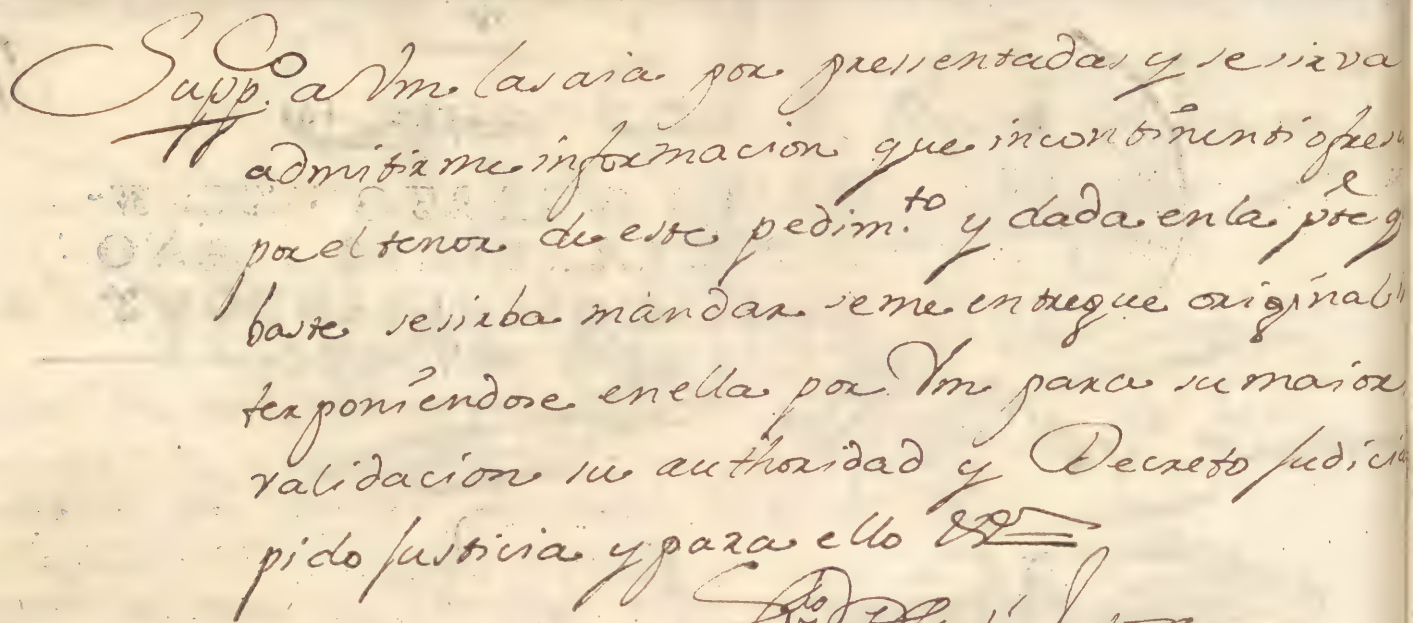 Supp.co a Vm las aia por pressentadas y se sirva
admitirme informacion que incontinenti ofres
por el tenor de este pedim.to y dada en la pte q
baste se sirba mandar se me entregue original in
terponiendose en ella por Vm para su maior
validacion su authoridad y Decreto Judicia
pido Justicia y para ello &